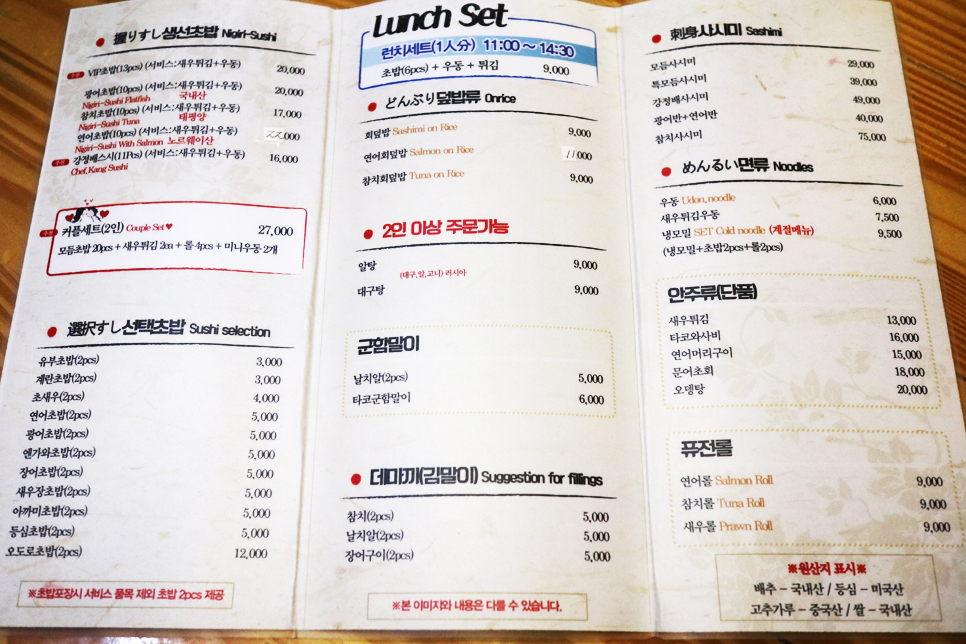 握りすし생선초밥 Nigiri-Sushi
추천 VIP초밥(13pcs) (서비스:새우튀김+우동) 20,000
광어초밥(10pcs) (서비스:새우튀김+우동) 20,000
Nigiri-Sushi Flatfish 국내산
참치초밥(10pcs) (서비스:새우튀김+우동) 17,000
Nigiri-Sushi Tuna 태평양
연어초밥(10pcs) (서비스:새우튀김+우동) 22,000
Nigiri-Sushi With Salmon 노르웨이산
추천 강정배스시(11Pcs) (서비스:새우튀김+우동) 16,000
Chef, Kang Sushi
추천 커플세트(2인) Couple Set♥ 27,000
모듬초밥 20pcs + 새우튀김 2ea + 롤 4pcs + 미니우동 2개
選択すし선택초밥 Sushi selection
유부초밥(2pcs) 3,000
계란초밥(2pcs) 3,000
초새우(2pcs) 4,000
연어초밥(2pcs) 5,000
광어초밥(2pcs) 5,000
엔가와초밥(2pcs) 5,000
장어초밥(2pcs) 5,000
새우장초밥(2pcs) 5,000
아까미초밥(2pcs) 5,000
등심초밥(2pcs) 5,000
오도로초밥(2pcs) 12,000
※초밥포장시 서비스 품목 제외 초밥 2pcs 제공
Lunch Set
런치세트(1人分) 11:00 ~ 14:30
초밥(6pcs) + 우동 + 튀김 9,000
どんぶり덮밥류 Onrice
회덮밥 Sashimi on Rice 9,000
연어회덮밥 Salmon on Rice 11,000
참치회덮밥 Tuna on Rice 9,000
2인 이상 주문가능
알탕 9,000
(대구,알,고니) 러시아
대구탕 9,000
군함말이
날치알(2pcs) 5,000
타코군함말이 6,000
데마끼(김말이) Suggestion for fillings
참치(2pcs) 5,000
날치알(2pcs) 5,000
장어구이(2pcs) 5,000
※본 이미지와 내용은 다를 수 있습니다.
刺身사시미 Sashimi
모듬사시미 29,000
특모듬사시미 39,000
강정배사시미 49,000
광어반+연어반 40,000
참치사시미 75,000
めんるい면류 Noodles
우동 Udon, noodle 6,000
새우튀김우동 7,500
냉모밀 SET Cold noodle (계절메뉴) 9,500
(냉모밀+초밥2pcs+롤2pcs)
안주류(단품)
새우튀김 13,000
타코와사비 16,000
연어머리구이 15,000
문어초회 18,000
오뎅탕 20,000
퓨전롤
연어롤 Salmon Roll 9,000
참치롤 Tuna Roll 9,000
새우롤 Prawn Roll 9,000
※원산지 표시※
배추 - 국내산 / 등심 - 미국산
고추가루 - 중국산 / 쌀 - 국내산